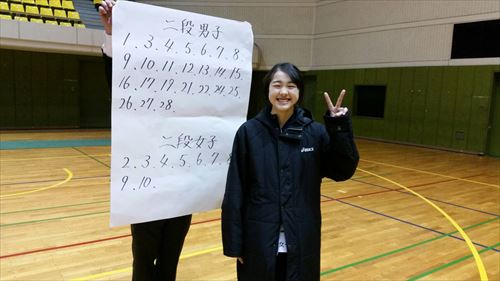 二段男子
1. 3. 4. 5. 6. 7. 8.
9. 10. 11. 12. 13. 14. 15.
16. 17. 19. 21. 22. 24. 25.
26. 27. 28.
二段女子
2. 3. 4. 5. 6. 7. 8
9. 10.
asics